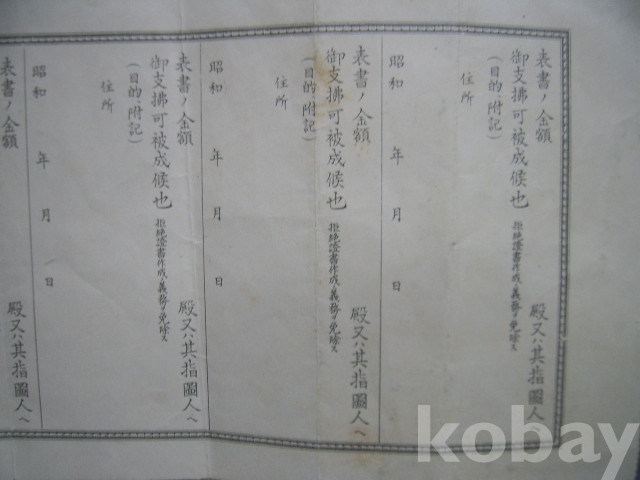 表書ノ金額
殿又ハ其指圖人ヘ
御支拂可被成候也
拒絶證書作成ノ義務ヲ免除ス
(目的、附記)
住所
昭和 年 月 日
表書ノ金額
殿又ハ其指圖人ヘ
御支拂可被成候也
拒絶證書作成ノ義務ヲ免除ス
(目的、附記)
住所
昭和 年 月 日
表書ノ金額
殿又ハ其指圖人ヘ
御支拂可被成候也
拒絶證書作成ノ義務ヲ免除ス
(目的、附記)
住所
昭和 年 月 日
表書ノ金額
殿又ハ其指圖人ヘ
kobay